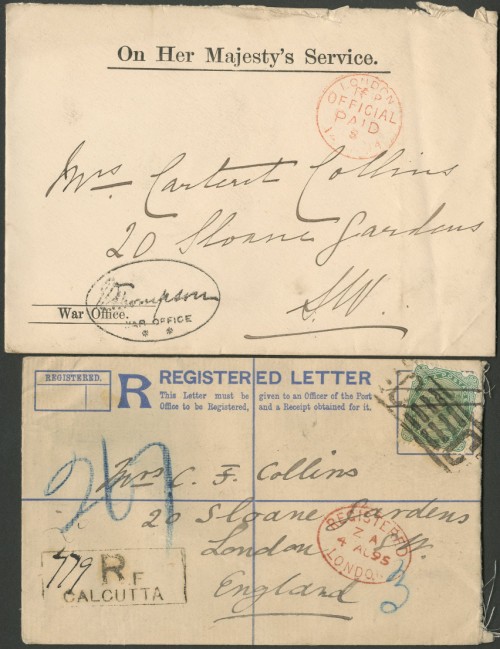 On Her Majesty's Service.
LONDON
OFFICIAL
PAID
Mrs Carteret Collins
20 Sloane Gardens
S.W.
Thompson
War Office.
WAR OFFICE
REGISTERED.
R REGISTERED LETTER
This Letter must be given to an Officer of the Post
Office to be Registered, and a Receipt obtained for it.
Mrs C. F. Collins
20 Sloane Gardens
London S.W.
England
REGISTERED
Z A
4 AU 95
LONDON
3
779 R
F
CALCUTTA